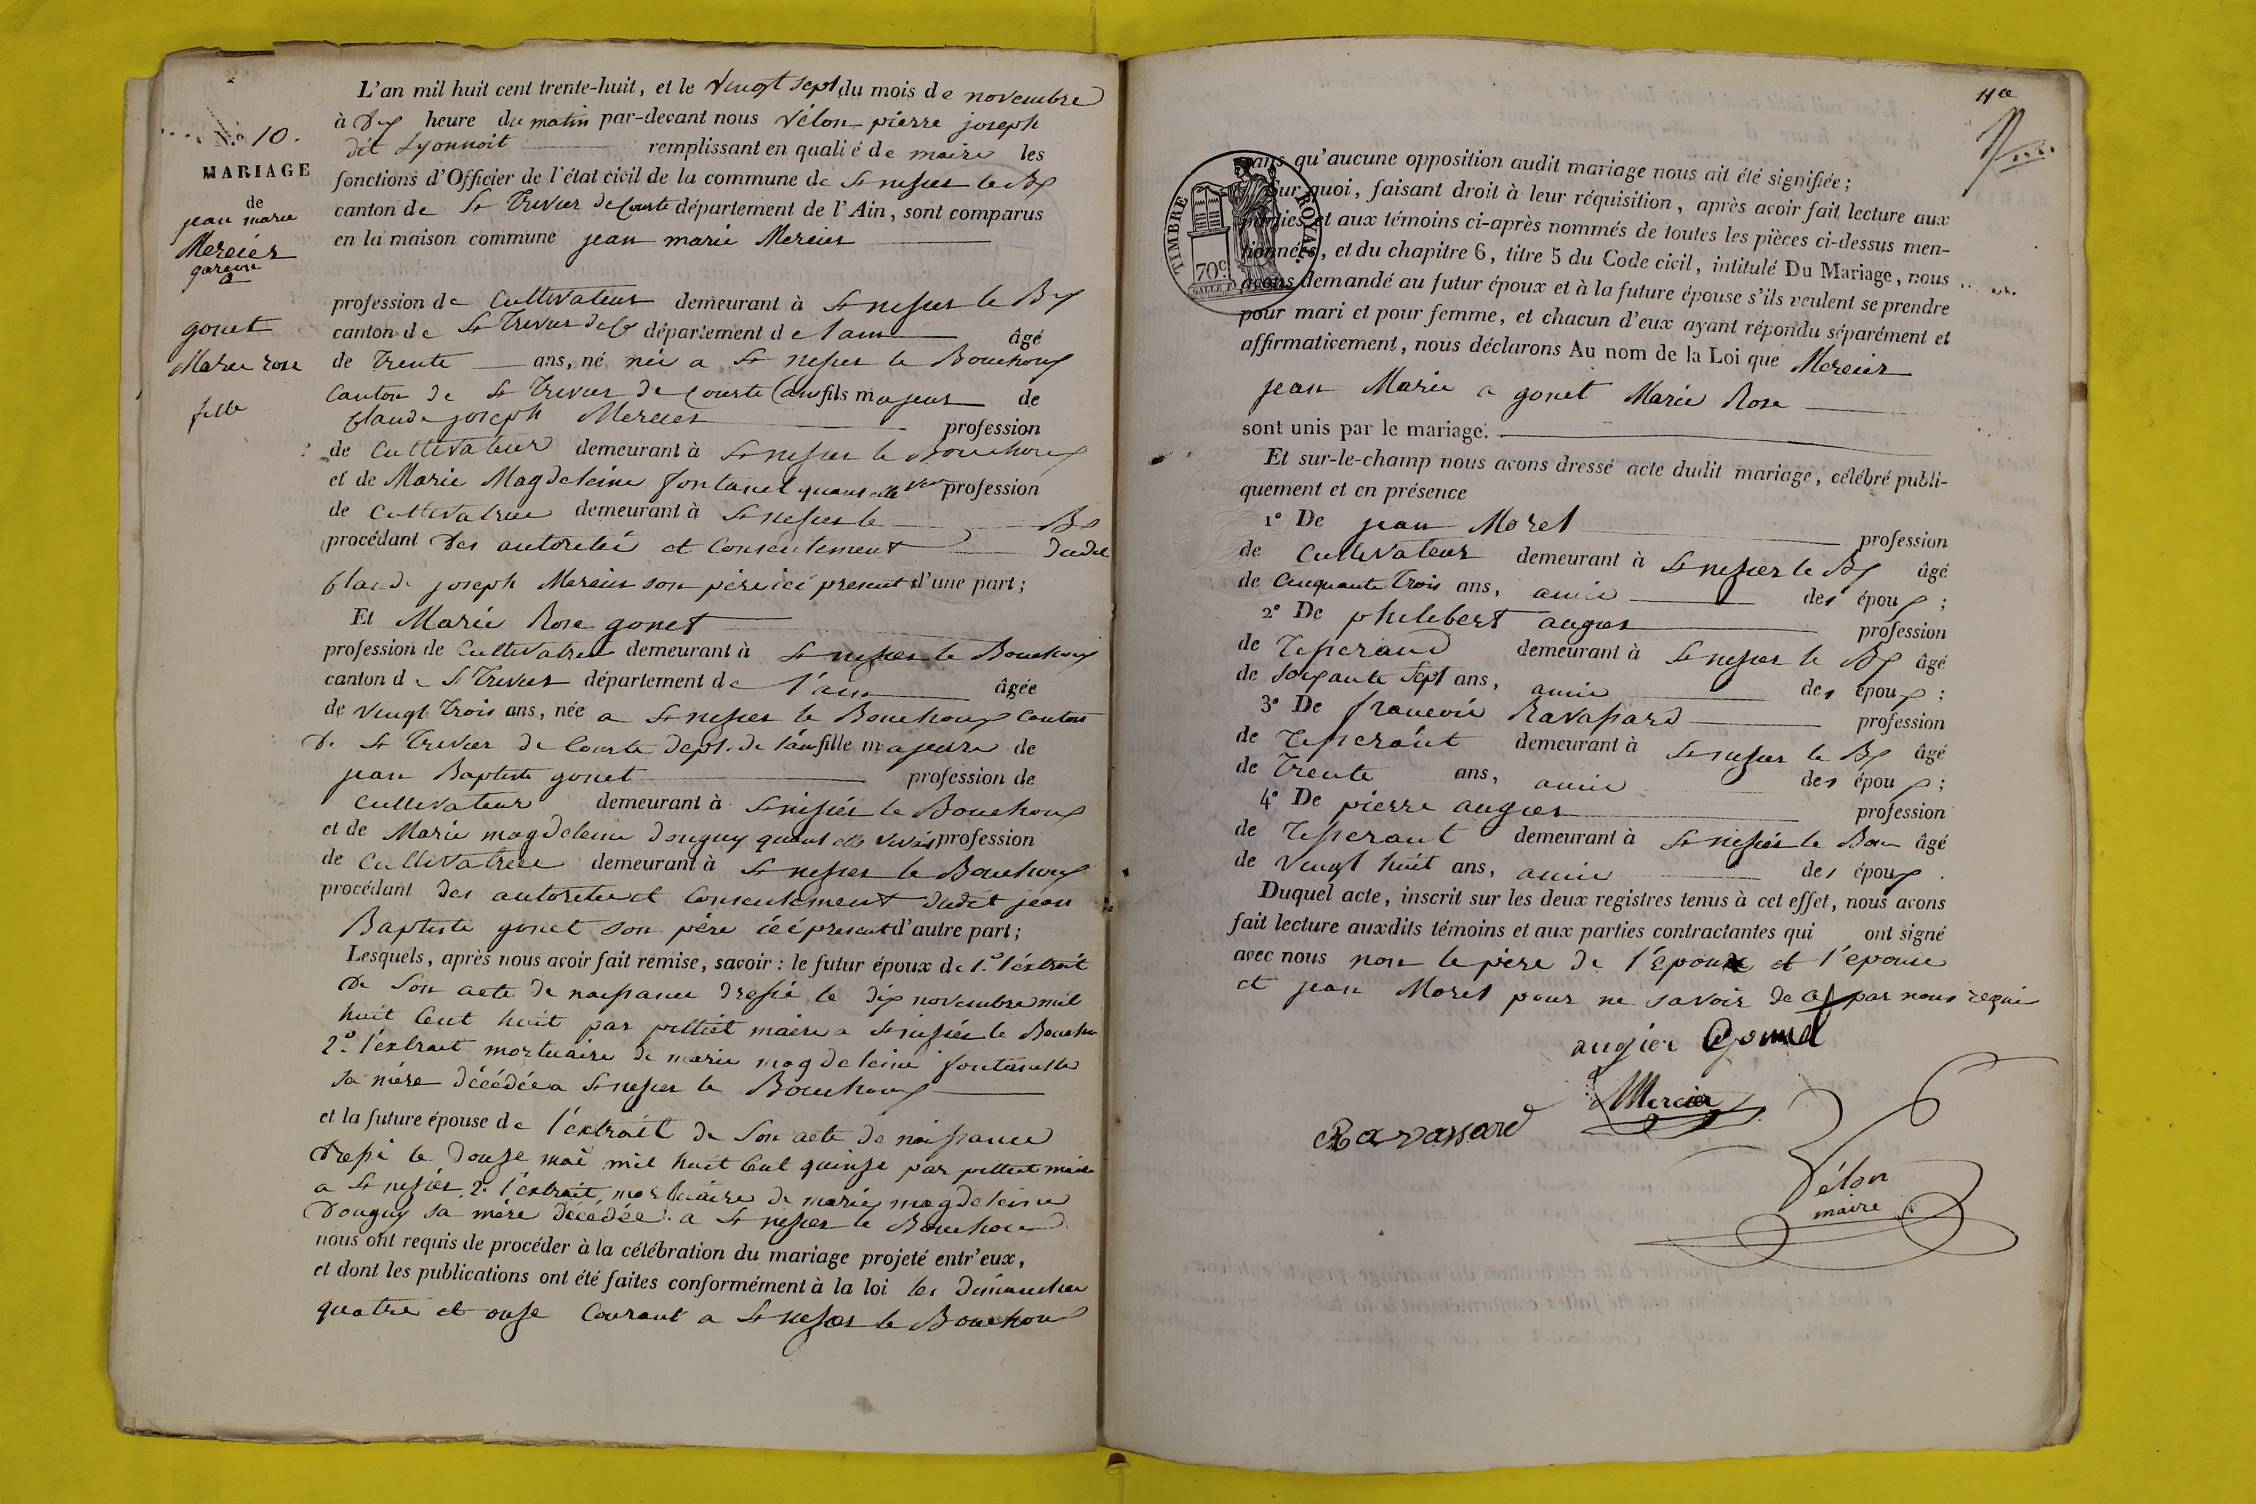 N.o 10.
MARIAGE
de
jean marie
Mercier
garcon
a
gonet
Marie rose
fille
L'an mil huit cent trente-huit, et le vingt sept du mois de novembre
à dix heure du matin par-devant nous Vélon pierre joseph
dit Lyonnoit remplissant en qualité de maire les
fonctions d'Officier de l'état civil de la commune de St nisier le Bx
canton de St Trivier de Courte département de l'Ain, sont comparus
en la maison commune jean marie Mercier
profession de Cultivateur demeurant à St nisier le Bx
canton de St Trivier de C département de l'ain âgé
de trente ans, né née a St nisier le Bouchoux
Canton de St Trivier de Courte (ain fils majeur de
Claude joseph Mercier profession
de Cultivateur demeurant à St nisier le Bouchoux
et de Marie Magdeleine fontanel quant elle profession
de Cultivatrice demeurant à St nisier le Bx
procédant des autorité et Consentement dudit
Claude joseph Mercier son père ici present d'une part;
Et Marie Rose gonet
profession de Cultivatrice demeurant à St nisier le Bouchoux
canton de St Trivier département de l'ain âgée
de vingt trois ans, née a St nisier le Bouchoux canton
de St Trivier de Courte dept. de l'ain fille majeure de
jean Baptiste gonet profession de
Cultivateur demeurant à St nisier le Bouchoux
et de Marie magdeleine donguy quant elle vivait profession
de Cultivatrice demeurant à St nisier le Bouchoux
procédant des autorité et Consentement dudit jean
Baptiste gonet son père ici present d'autre part;
Lesquels, après nous avoir fait remise, savoir : le futur époux de 1.o l'éxtrait
de Son acte de naissance dressé le dix novembre mil
huit Cent huit par pilliet maire a St nisier le Bouchou
2.o l'éxtrait mortuaire de marie magdeleine fontanelle
sa mère décédée a St nisier le Bouchoux
et la future épouse de l'éxtrait de Son acte de naissance
dressé le douse mai mil huit Cent quinse par pilliet maire
a St nisier, 2.o l'éxtrait mortuaire de marie magdeleine
donguy sa mère décédée a St nisier le Bouchoux
nous ont requis de procéder à la célébration du mariage projeté entr'eux,
et dont les publications ont été faites conformément à la loi les dimanches
quatre et onse Courant a St nisier le Bouchoux
TIMBRE ROYAL
70c
sans qu'aucune opposition audit mariage nous ait été signifiée;
Sur quoi, faisant droit à leur réquisition, après avoir fait lecture aux
parties et aux témoins ci-après nommés de toutes les pièces ci-dessus men-
tionnées, et du chapitre 6, titre 5 du Code civil, intitulé Du Mariage, nous
avons demandé au futur époux et à la future épouse s'ils veulent se prendre
pour mari et pour femme, et chacun d'eux ayant répondu séparément et
affirmativement, nous déclarons Au nom de la Loi que Mercier
jean Marie a gonet Marie Rose
sont unis par le mariage.
Et sur-le-champ nous avons dressé acte dudit mariage, célébré publi-
quement et en présence
1o De jean Morel profession
de Cultivateur demeurant à St nisier le Bx âgé
de Cinquante trois ans, amie des époux;
2o De philibert augier profession
de Tisserand demeurant à St nisier le Bx âgé
de Soixante Sept ans, amie des époux;
3o De francois Ravassard profession
de Tisserant demeurant à St nisier le Bx âgé
de Trente ans, amie des époux;
4o De pierre augier profession
de Tisserant demeurant à St nisier le Bou âgé
de Vingt huit ans, amie des époux.
Duquel acte, inscrit sur les deux registres tenus à cet effet, nous avons
fait lecture auxdits témoins et aux parties contractantes qui ont signé
avec nous non le père de l'époux et l'épouse
et jean Morel pour ne savoir de ce par nous requis
augier Gonet
Mercier
Ravassard
Vélon
maire